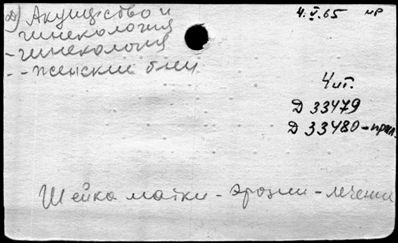 д) Акушерство и
гинекология
4.V.65 МР
- гинекология
- - женский
4 шт.
Д 33479
Д 33480 - прил.
Шейка матки - эрозии - лечение